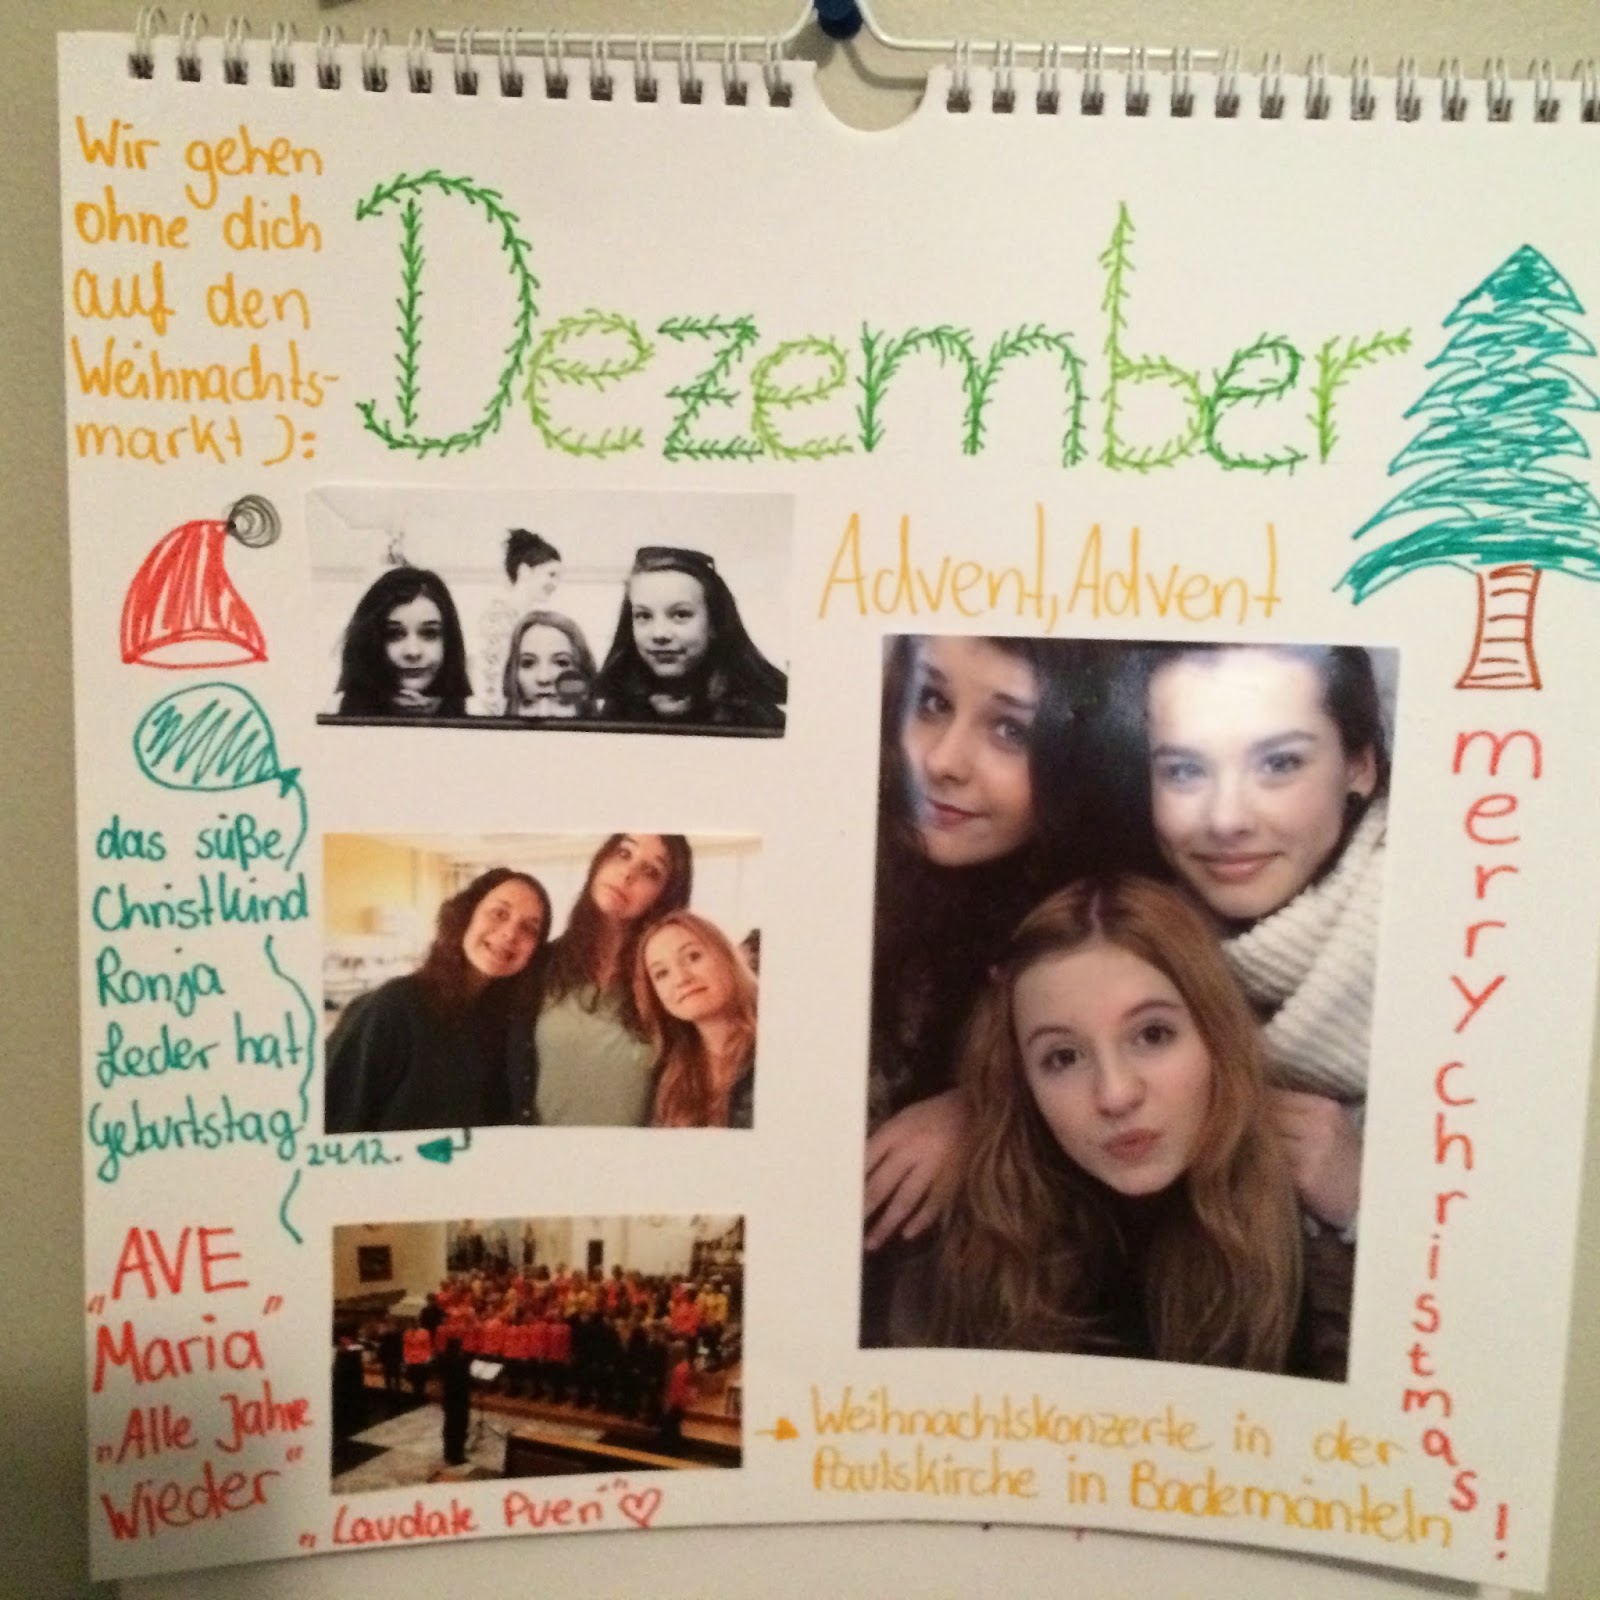 Wir gehen
ohne dich
auf den
Weihnachts-
markt ):
Dezember
Advent, Advent
das süße
Christkind
Ronja
Leder hat
Geburtstag
24.12.
„AVE
Maria"
„Alle Jahre
Wieder"
„Laudate Pueri" ♡
Weihnachtskonzerte in der
Paulskirche in Bademänteln
merry christmas!